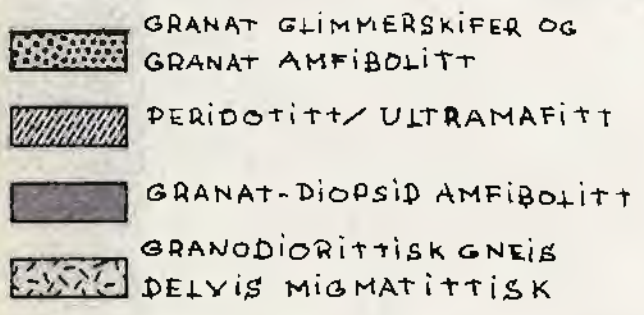 GRANAT GLIMMERSKIFER OG
GRANAT AMFIBOLITT
PERIDOTITT/ ULTRAMAFITT
GRANAT-DIOPSID AMFIBOLITT
GRANODIORITTISK GNEIS
DELVIS MIGMATITTISK